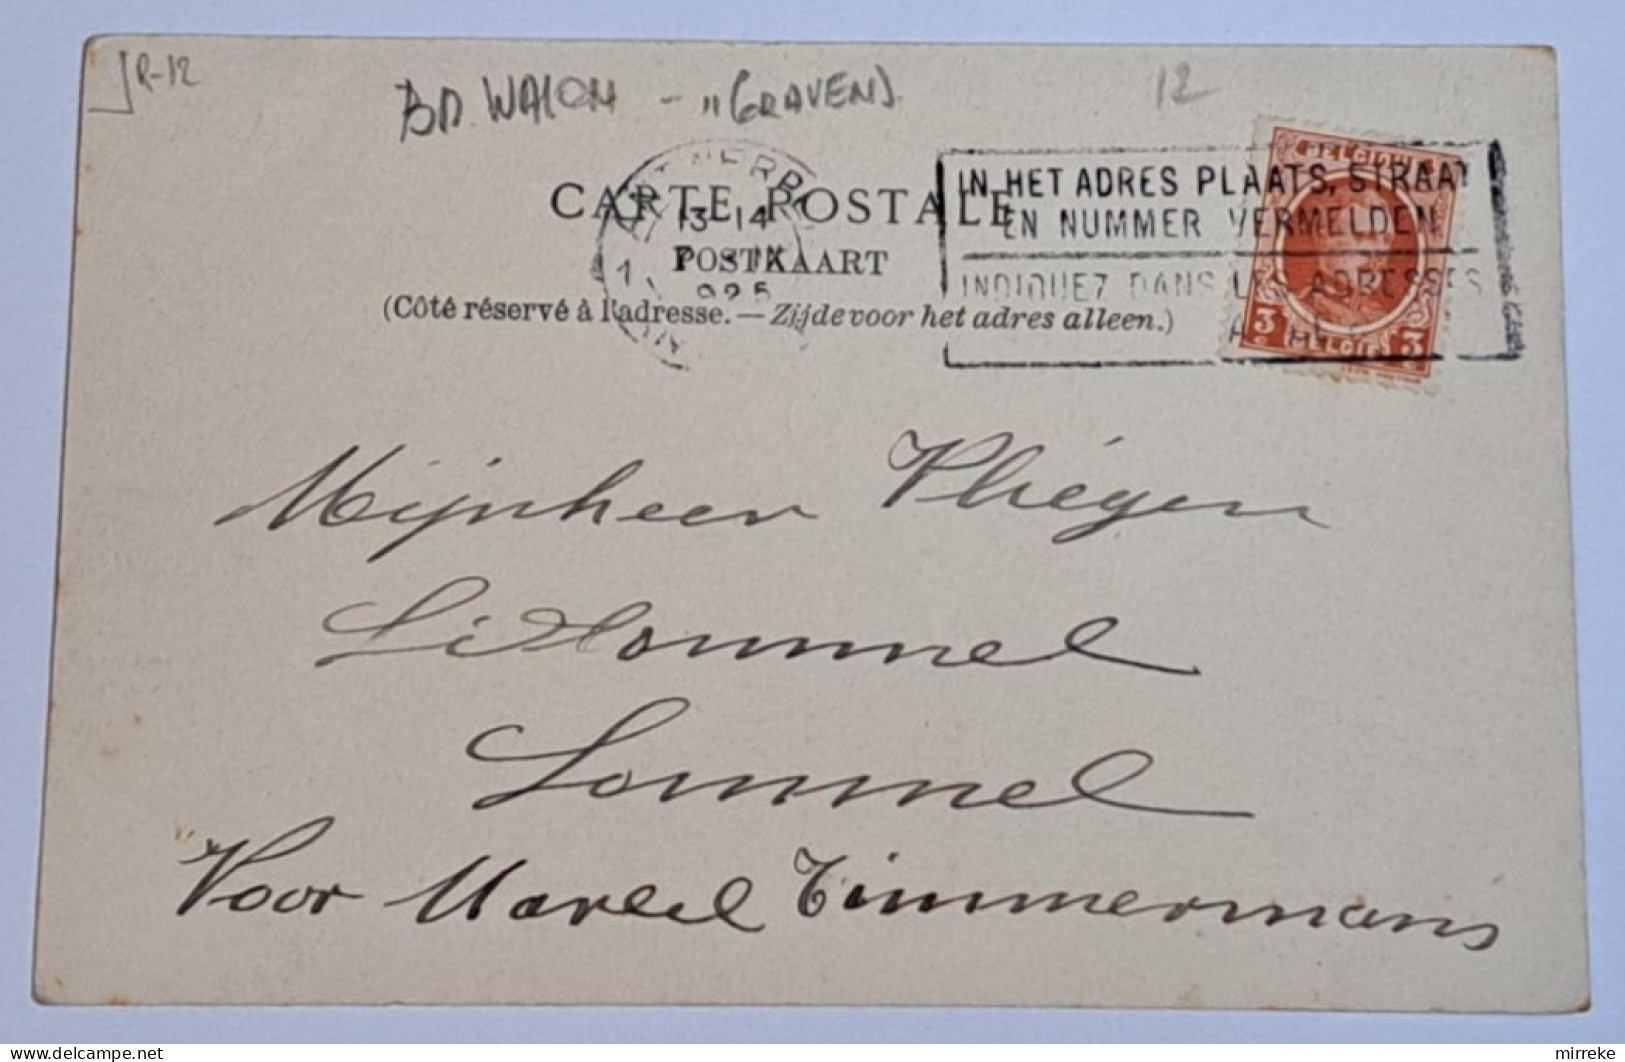 R-12
BD. WALON - "(GRAVEN).
12
CARTE POSTALE
POSTKAART
(Côté réservé à l'adresse. — Zijde voor het adres alleen.)
13 - 14
IN HET ADRES PLAATS, STRAAT
EN NUMMER VERMELDEN
INDIQUEZ DANS LES ADRESSES
BELGIQUE
3 3
BELGIË
Mijnheer
Lommel
Voor Marcel Timmermans
mirreke